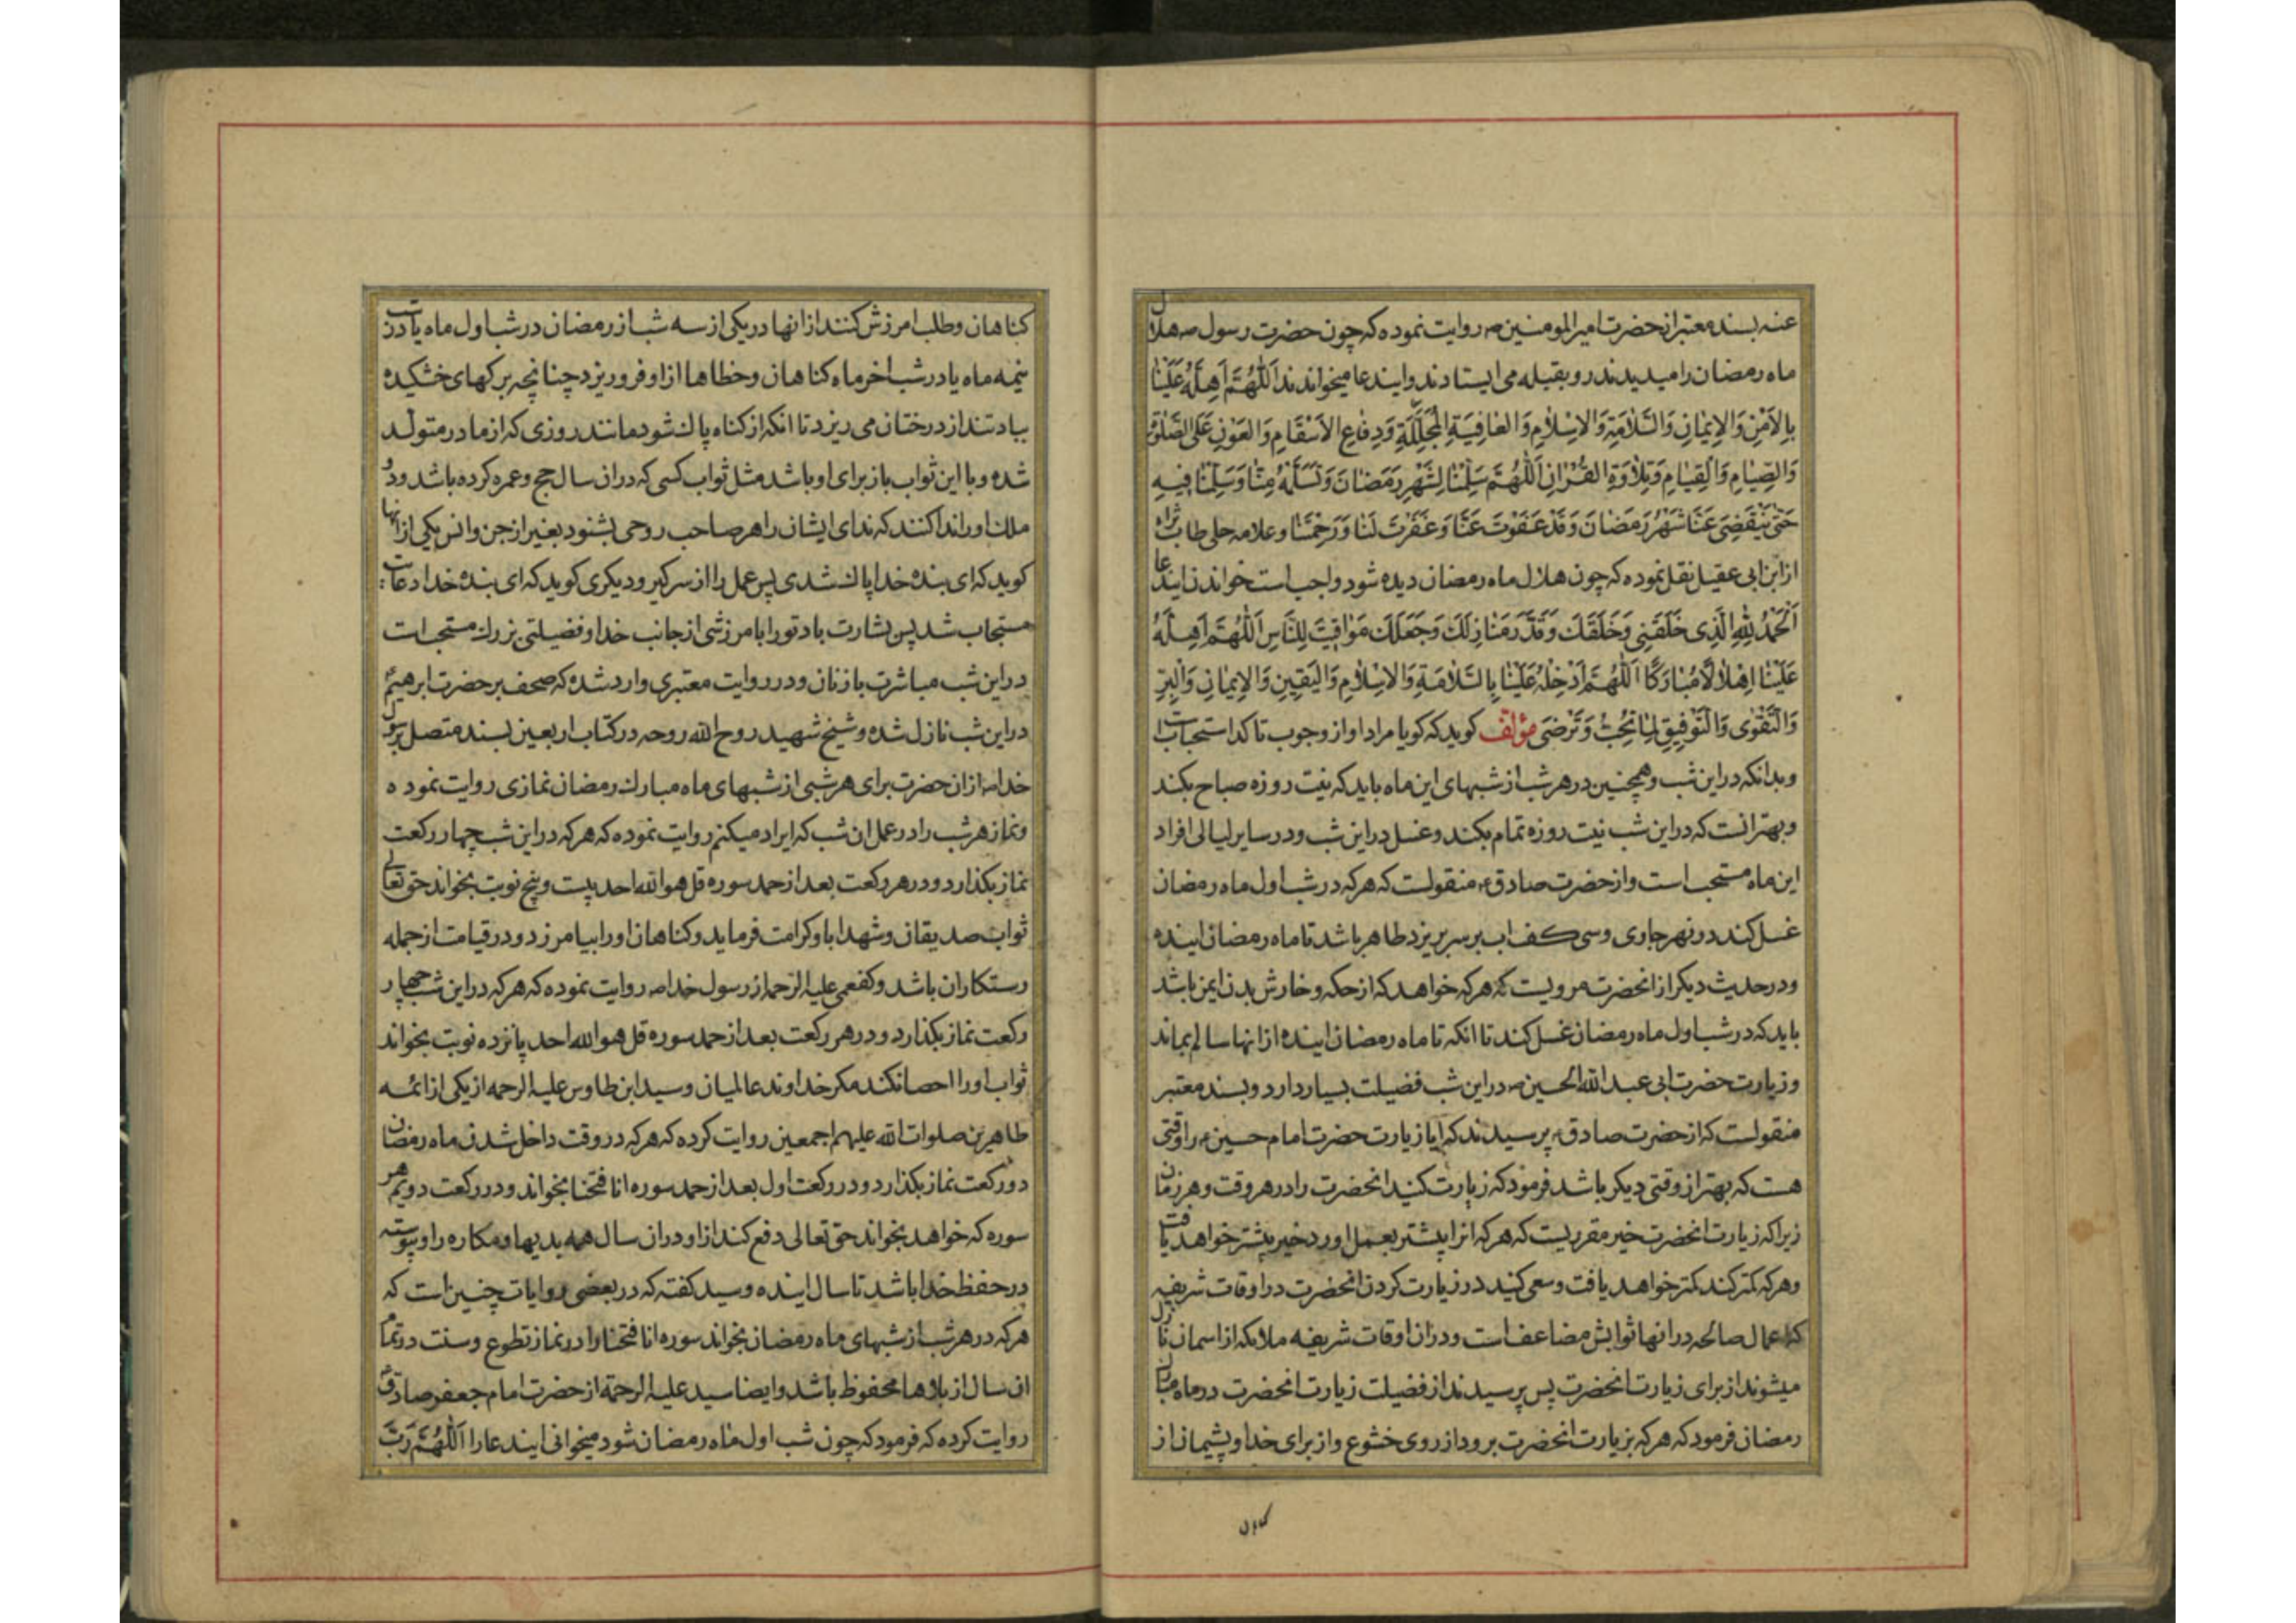 عنه بسند معتبر از حضرت امیرالمومنین ص روایت نموده که چون حضرت رسول ص هلال
ماه رمضان را میدیدند رو بقبله می ایستادند و ایندعا میخواندند اَللّٰهُمَّ اَهِلَّهُ عَلَيْنٰا
بِالاَمْنِ وَالاِيمٰانِ وَالسَّلاٰمَةِ وَالاِسْلاٰمِ وَالعٰافِيَةِ الْمُجَلِّلَةِ وَدِفٰاعِ الاَسْقٰامِ وَالعَوْنِ عَلَى الصَّلٰوةِ
وَالصِّيٰامِ وَالْقِيٰامِ وَتِلاٰوَةِ القُرْاٰنِ اَللّٰهُمَّ سَلِّمْنٰا لِشَهْرِ رَمَضٰانَ وَتَسَلَّمْهُ مِنّٰا وَسَلِّمْنٰا فِيهِ
حَتّٰى يَنْقَضِىَ عَنّٰا شَهْرُ رَمَضٰانَ وَقَدْ عَفَوْتَ عَنّٰا وَغَفَرْتَ لَنٰا وَرَحِمْتَنٰا وعلامه حلی طاب ثراه
از ابن ابی عقیل نقل نموده که چون هلال ماه رمضان دیده شود واجب است خواندن ایندعا
اَلْحَمْدُ لِلّٰهِ الَّذِى خَلَقَنِى وَخَلَقَكَ وَقَدَّرَ مَنٰازِلَكَ وَجَعَلَكَ مَوٰاقِيتَ لِلنّٰاسِ اَللّٰهُمَّ اَهِلَّهُ
عَلَيْنٰا اِهْلاٰلاً مُبٰارَكًا اَللّٰهُمَّ اَدْخِلْهُ عَلَيْنٰا بِالسَّلاٰمَةِ وَالاِسْلاٰمِ وَالْيَقِينِ وَالاِيمٰانِ وَالْبِرِّ
وَالتَّقْوٰى وَالتَّوْفِيقِ لِمٰا تُحِبُّ وَتَرْضَى مؤلف کوید که کویا مراد او از وجوب تاکد استحباب است
وبدانکه در این شب وهمچنین در هر شب از شبهای این ماه باید که نیت روزه صباح بکند
وبهتر انست که در این شب نیت روزه تمام بکند وغسل در این شب ودر سایر لیالی افراد
این ماه مستحب است واز حضرت صادق ع منقولست که هر که در شب اول ماه رمضان
غسل کند در نهر جاری وسی کف اب بر سر بریزد طاهر باشد تا ماه رمضان اینده
ودر حدیث دیکر از انحضرت مرویست که هر که خواهد که از حکه وخارش بدن ایمن باشد
باید که در شب اول ماه رمضان غسل کند تا انکه تا ماه رمضان اینده از انها سالم بماند
وزیارت حضرت ابی عبدالله الحسین ص در این شب فضیلت بسیار دارد وبسند معتبر
منقولست که از حضرت صادق ع پرسیدند که ایا زیارت حضرت امام حسین ع را وقتی
هست که بهتر از وقتی دیکر باشد فرمود که زیارت کنید انحضرت را در هر وقت وهر زمان
زیرا که زیارت انحضرت خیر مقرریست که هر که انرا بیشتر بعمل اورد خیر بیشتر خواهد یافت
وهر که کمتر کند کمتر خواهد یافت وسعی کنید در زیارت کردن انحضرت در اوقات شریفه
که اعمال صالحه در انها ثوابش مضاعف است ودر ان اوقات شریفه ملائکه از اسمان نازل
میشوند از برای زیارت انحضرت پس پرسیدند از فضیلت زیارت انحضرت در ماه مبارک
رمضان فرمود که هر که بزیارت انحضرت برود از روی خشوع واز برای خدا وپشیمان از
کناهان
کناهان وطلب امرزش کنند از انها در یکی از سه شب از رمضان در شب اول ماه یا در شب
نیمه ماه یا در شب اخر ماه کناهان وخطاها از او فرو ریزد چنانچه برکهای خشکیده
بباد تند از درختان می ریزد تا انکه از کناه پاک شود مانند روزی که از مادر متولد
شده وبا این ثواب باز برای او باشد مثل ثواب کسی که در ان سال حج وعمره کرده باشد ودو
ملک او را ندا کنند که ندای ایشان را هر صاحب روحی بشنود بغیر از جن وانس یکی از انها
کوید که ای بنده خدا پاک شدی پس عمل را از سر کیر ودیکری کوید که ای بنده خدا دعات
مستجاب شد پس بشارت باد تو را بامرزشی از جانب خدا وفضیلتی بزرک مستحب است
در این شب مباشرت با زنان ودر روایت معتبری وارد شده که صحف بر حضرت ابرهیم ع
در این شب نازل شده وشیخ شهید روح الله روحه در کتاب اربعین بسند متصل برسول
خدا ص از ان حضرت برای هر شبی از شبهای ماه مبارک رمضان نمازی روایت نموده
ونماز هر شب را در عمل ان شب که ایراد میکنم روایت نموده که هر که در این شب چهار رکعت
نماز بکذارد ودر هر رکعت بعد از حمد سوره قل هو الله احد بیست وپنج نوبت بخواند حق تعالی
ثواب صدیقان وشهدا باو کرامت فرماید وکناهان او را بیامرزد ودر قیامت از جمله
رستکاران باشد وکفعمی علیه الرحمه از رسول خدا ص روایت نموده که هر که در این شب چهار
رکعت نماز بکذارد ودر هر رکعت بعد از حمد سوره قل هو الله احد پانزده نوبت بخواند
ثواب او را احصا نکند مکر خداوند عالمیان وسید ابن طاوس علیه الرحمه از یکی از ائمه
طاهرین صلوات الله علیهم اجمعین روایت کرده که هر که در وقت داخل شدن ماه رمضان
دو رکعت نماز بکذارد ودر رکعت اول بعد از حمد سوره انا فتحنا بخواند ودر رکعت دویم هر
سوره که خواهد بخواند حق تعالی دفع کند از او در ان سال همه بدیها ومکاره را وپیوسته
در حفظ خدا باشد تا سال اینده وسید کفته که در بعضی روایات چنین است که
هر که در هر شب از شبهای ماه رمضان بخواند سوره انا فتحنا را در نماز تطوع وسنت در تمام
ان سال از بلاها محفوظ باشد وایضا سید علیه الرحمة از حضرت امام جعفر صادق ع
روایت کرده که فرمود که چون شب اول ماه رمضان شود میخوانی ایندعا را اَللّٰهُمَّ رَبَّ